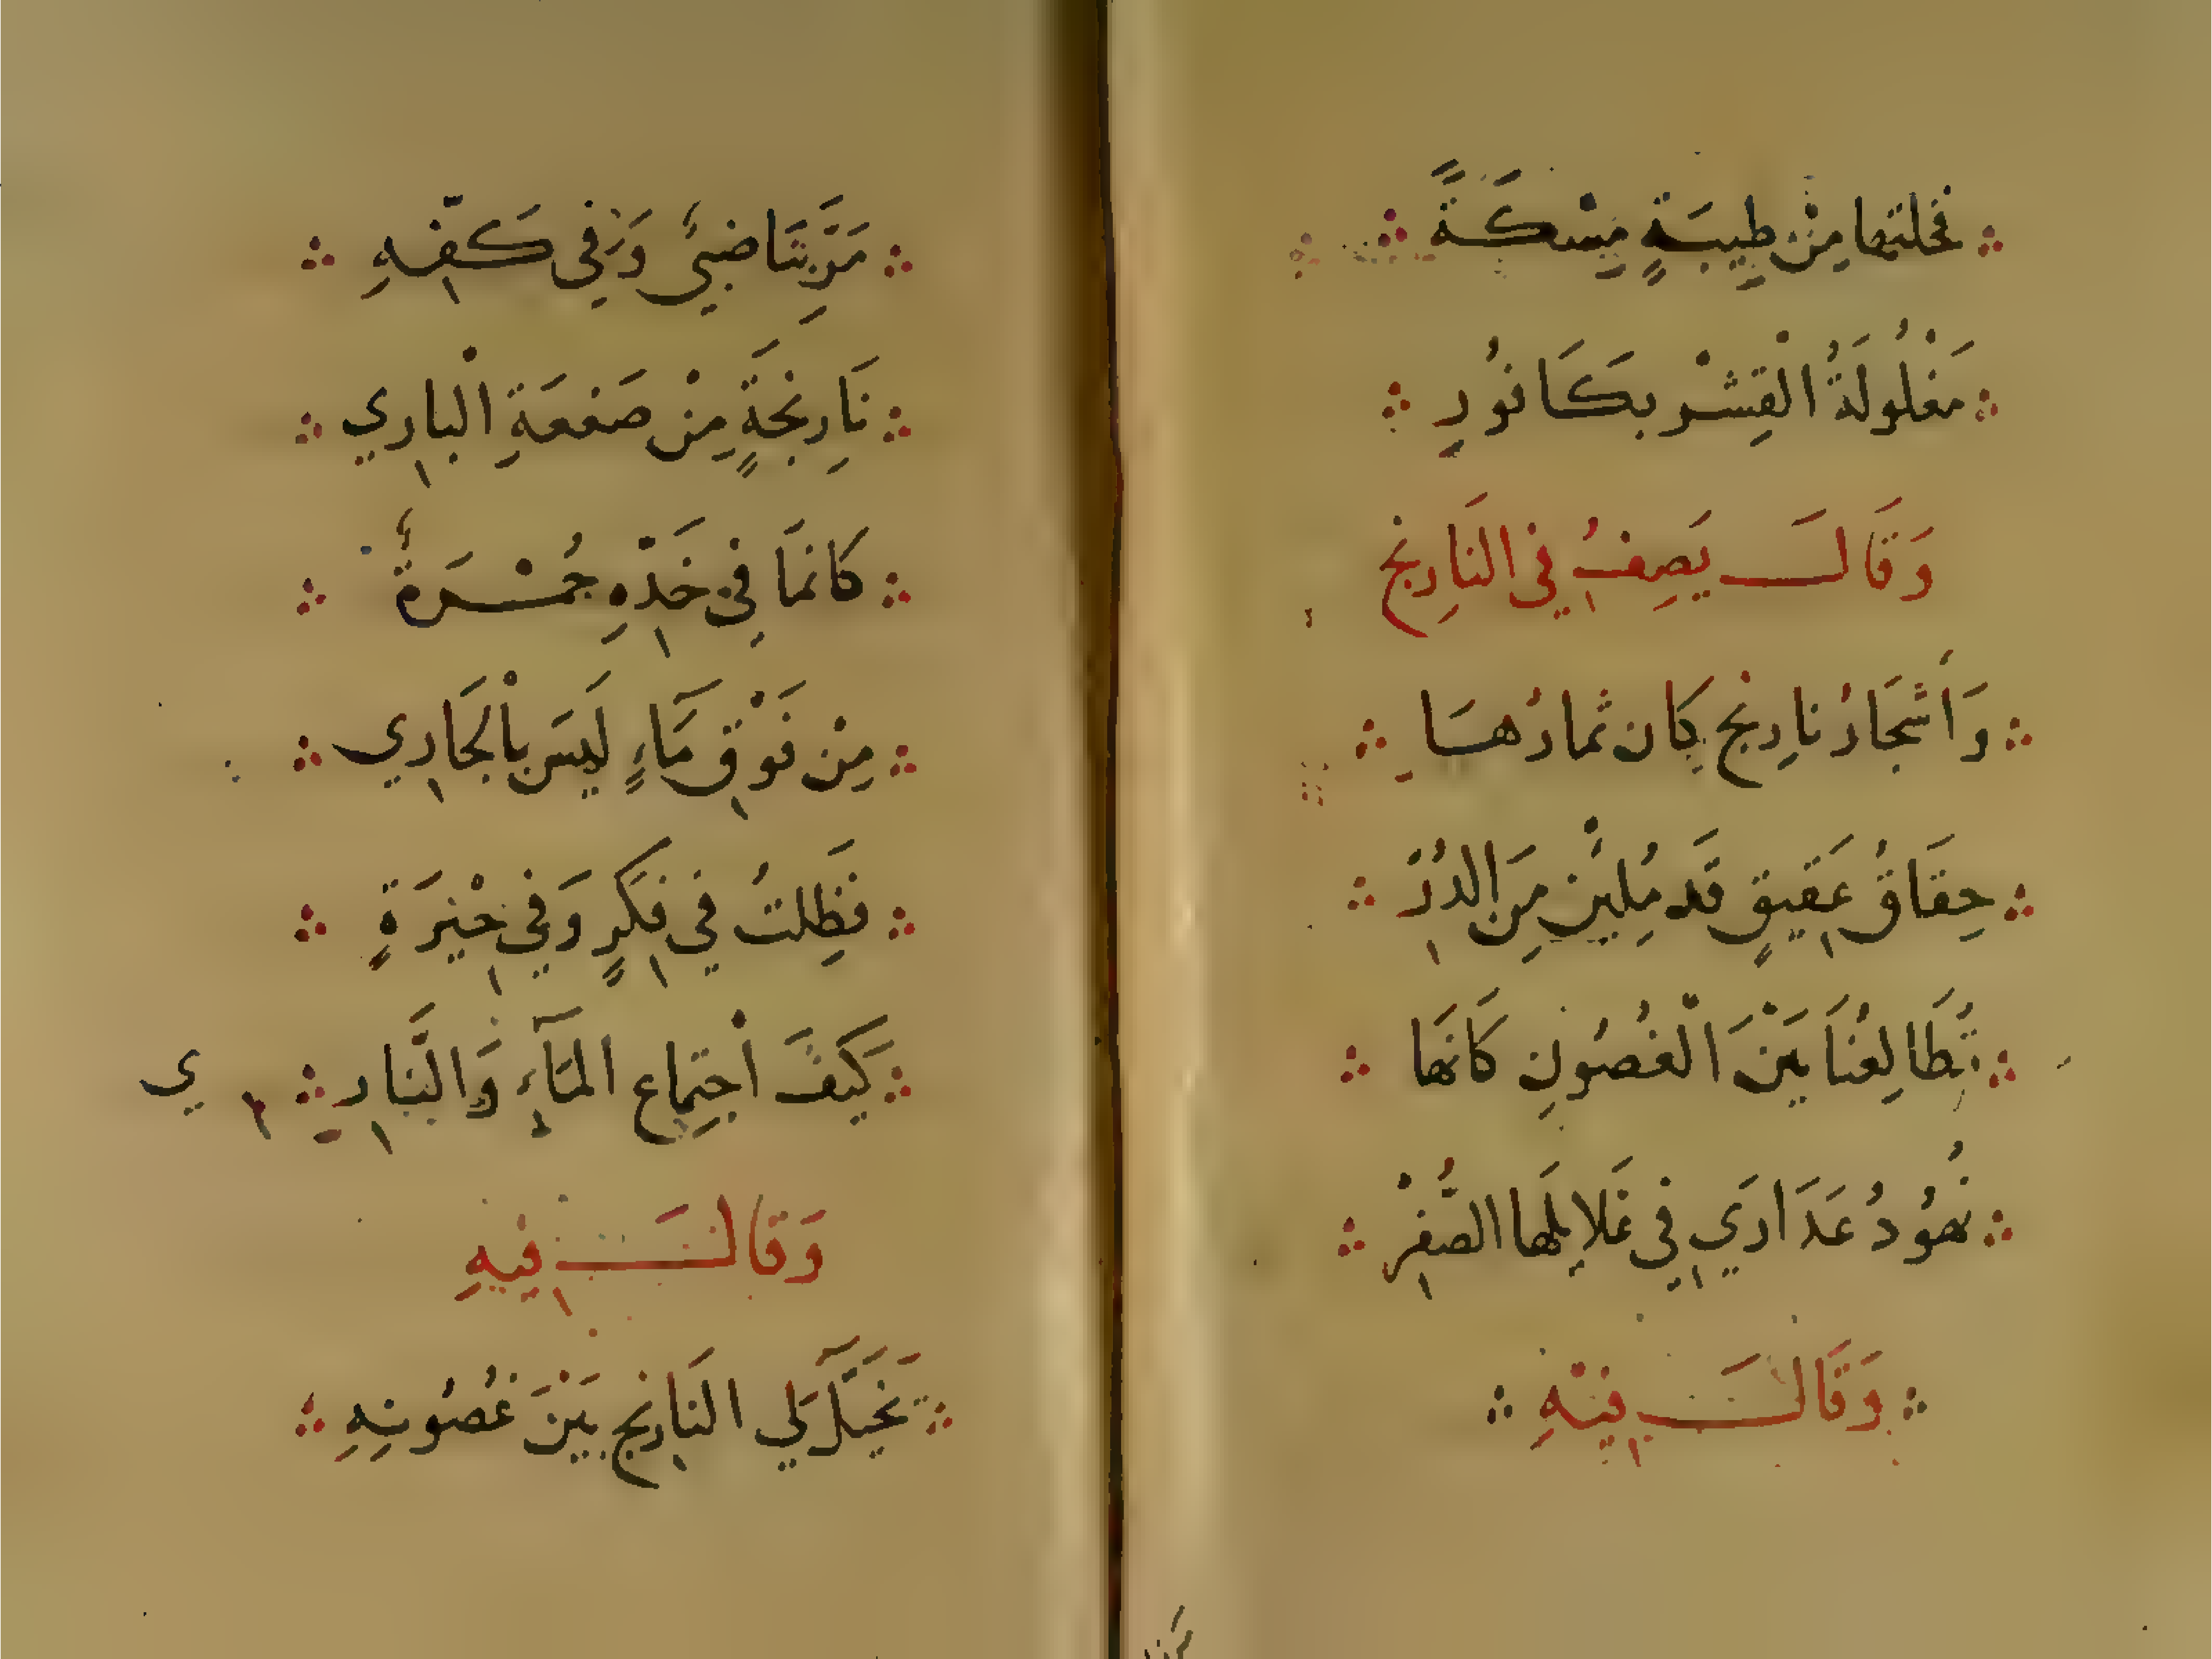 فخلتها مِنْ طِيبَةٍ مِسْكَةً
مَغْلُولَةُ الْقِشْر بكَافُورِ
وَقَالَ يَصِفُ فِي النَارِنج
وَأَشْجَارُ نارِنج كان ثمارُها
حِقَاقُ عَقِيقٍ قَد مُلِيْنَ مِنَ الدُرِّ
تُطَالِعُنَا بَيْنَ الْغُصُونِ كَانَها
نُهُودُ عَدَارَي فِي غَلايِلَها الصُّفرْ
وَقَالَ فِيْهِ
مَرَّ بِنَا ضبيٌ وَفِي كَفّهِ
نَارِنجَةٍ مِنْ صَفعَةِ الْبارِي
كانمَا فِى خَدّهِ جُمْرَةٌ
مِنْ فَوْقِ مَآءٍ لَيسَ بالْجَارِي
فظَلِتُ فِي فِكَرٍ وَفِي حْيرَةٍ
كَيفَ اجْتِماع المَآءِ وَالنَّارِ ي
وَقالَ فِيهِ
تَخَيَّلَ لِي النَارِنج بَيْنَ غُصُونِهِ